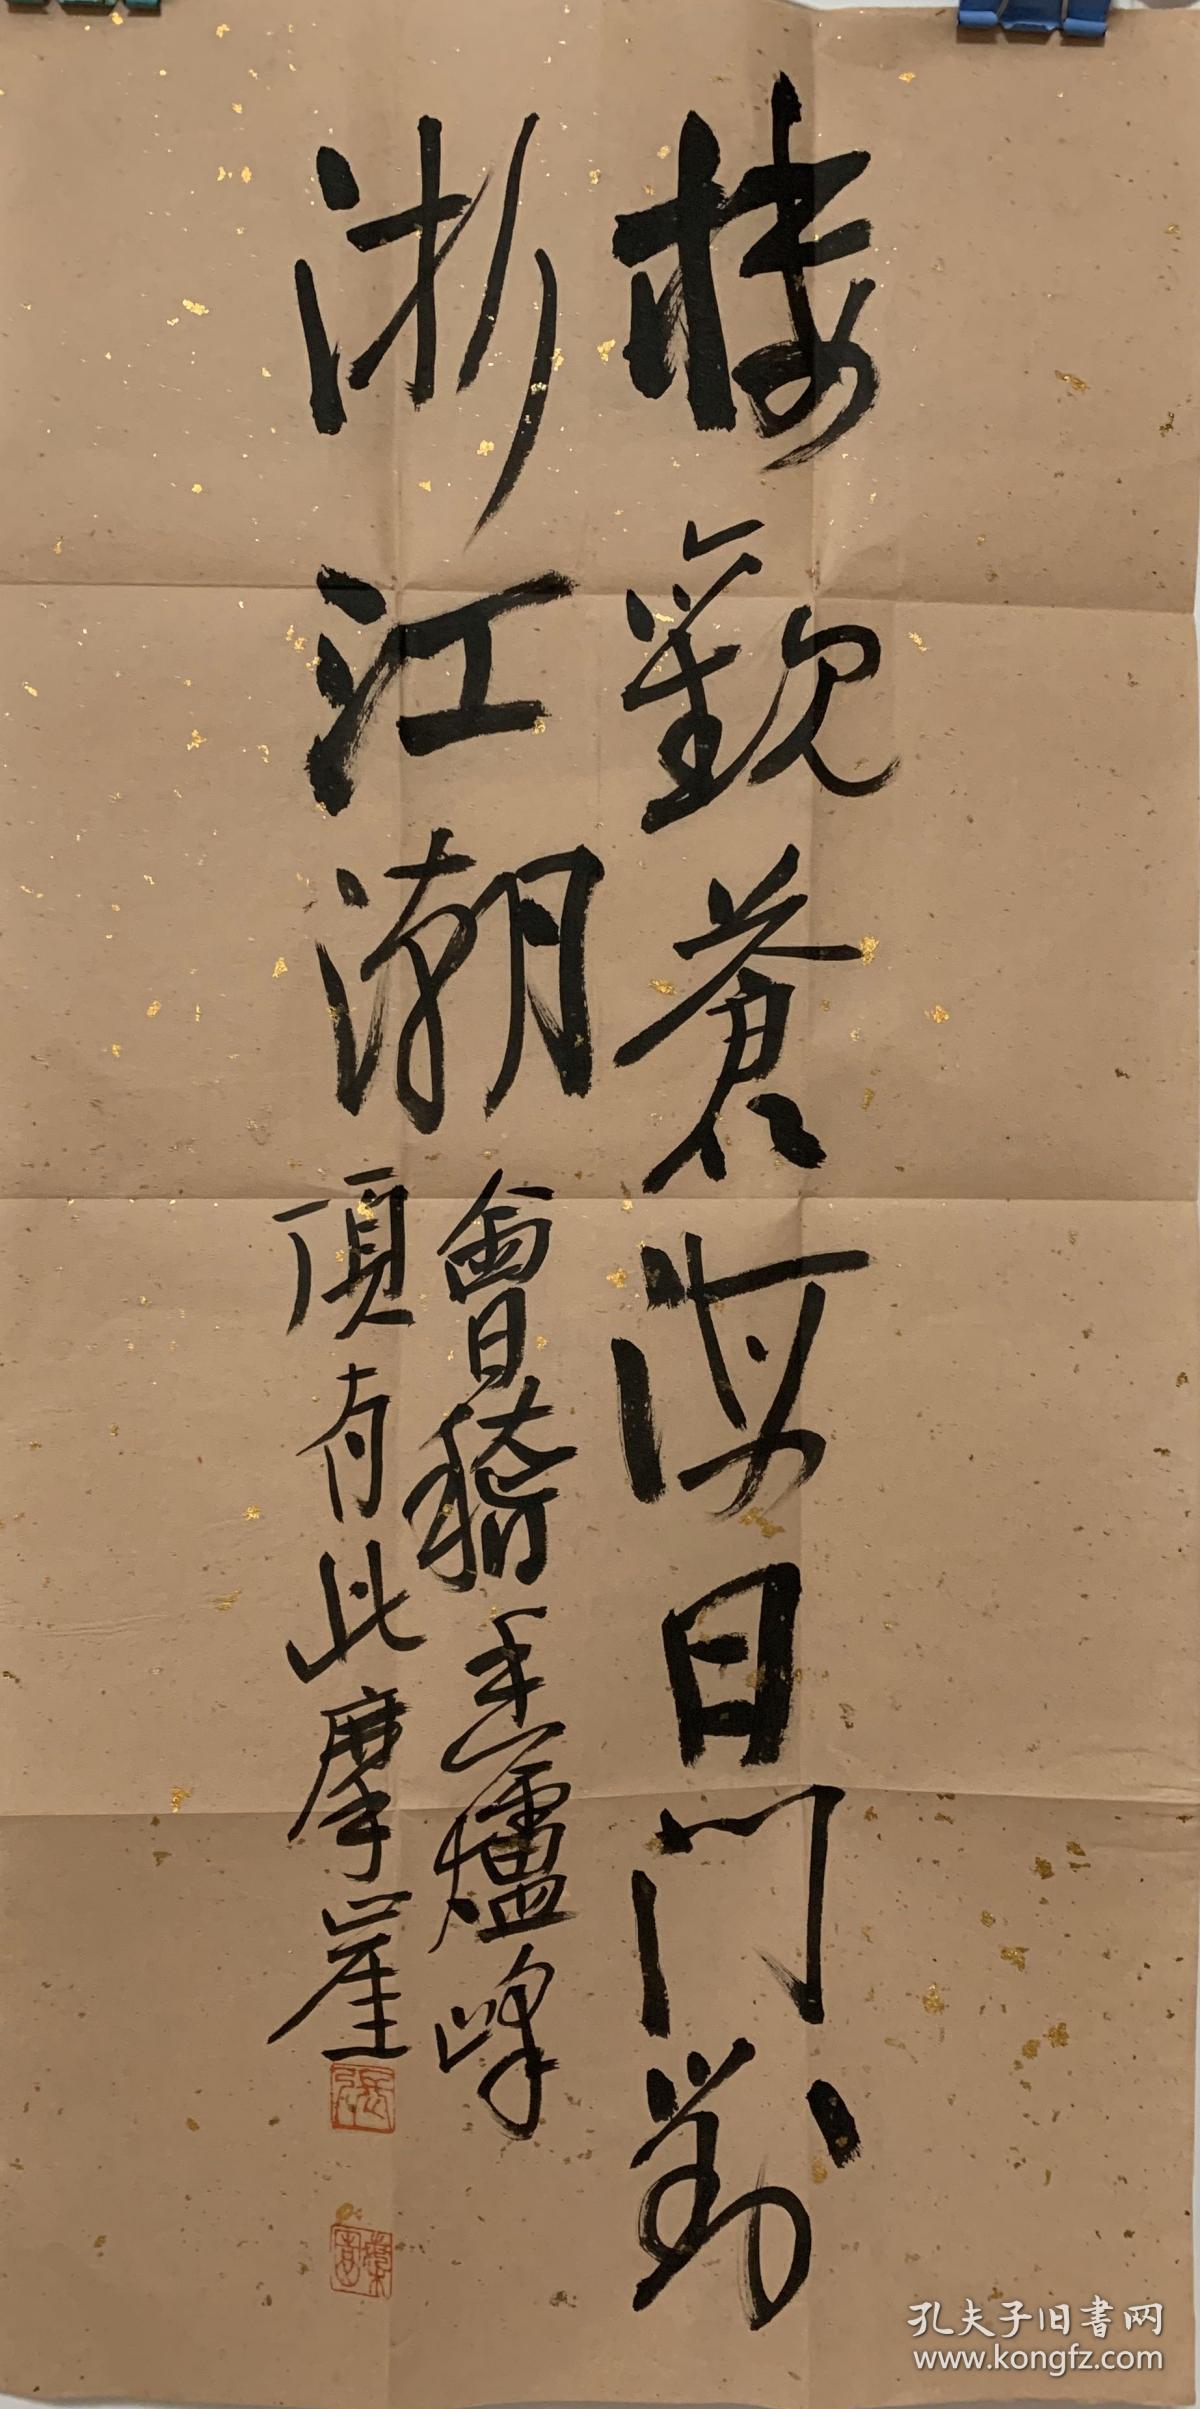 楼觀蒼海日門對
浙江潮
會稽香爐峰
頂有此摩崖
孔夫子旧书网
www.kongfz.com